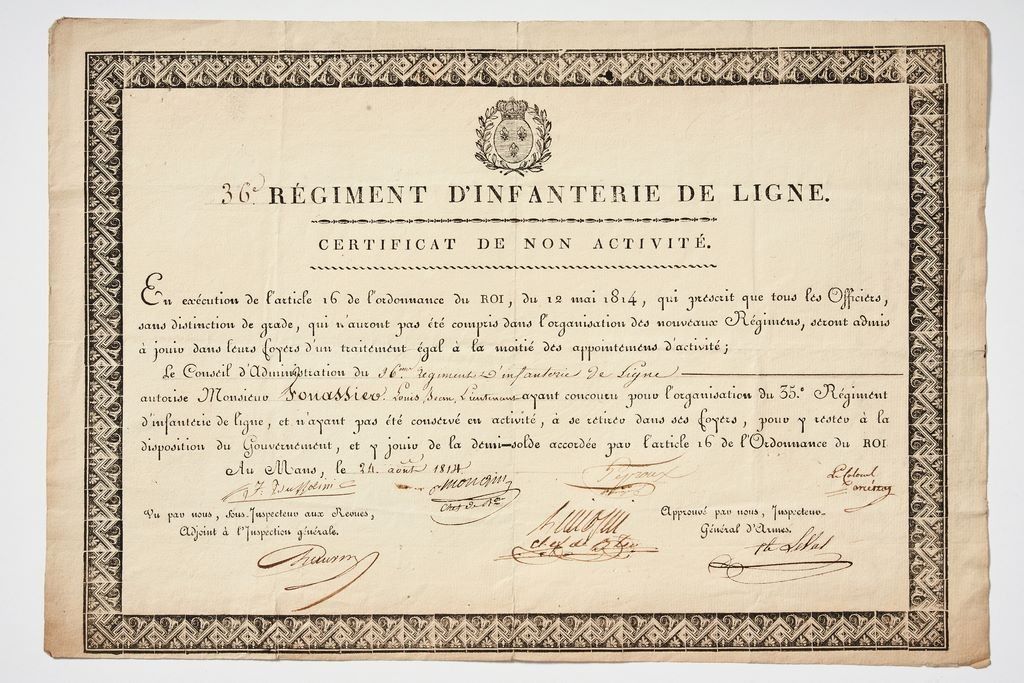 36.e RÉGIMENT D'INFANTERIE DE LIGNE.
CERTIFICAT DE NON ACTIVITÉ.
En exécution de l'article 16 de l'ordonnance du ROI, du 12 mai 1814, qui prescrit que tous les Officiers,
sans distinction de grade, qui n'auront pas été compris dans l'organisation des nouveaux Régimens, seront admis
à jouir dans leurs foyers d'un traitement égal à la moitié des appointemens d'activité;
Le Conseil d'Administration du 36me Régiment d'infanterie de Ligne
autorise Monsieur Fouassier Louis Jean, Lieutenant ayant concouru pour l'organisation du 35.e Régiment
d'infanterie de ligne, et n'ayant pas été conservé en activité, à se retirer dans ses foyers, pour y rester à la
disposition du Gouvernement, et y jouir de la demi-solde accordée par l'article 16 de l'Ordonnance du ROI
Au Mans, le 24 août 1814
Vu par nous, Sous-Inspecteur aux Revues,
Adjoint à l'Inspection générale.
Approuvé par nous, Inspecteur-
Général d'Armes.